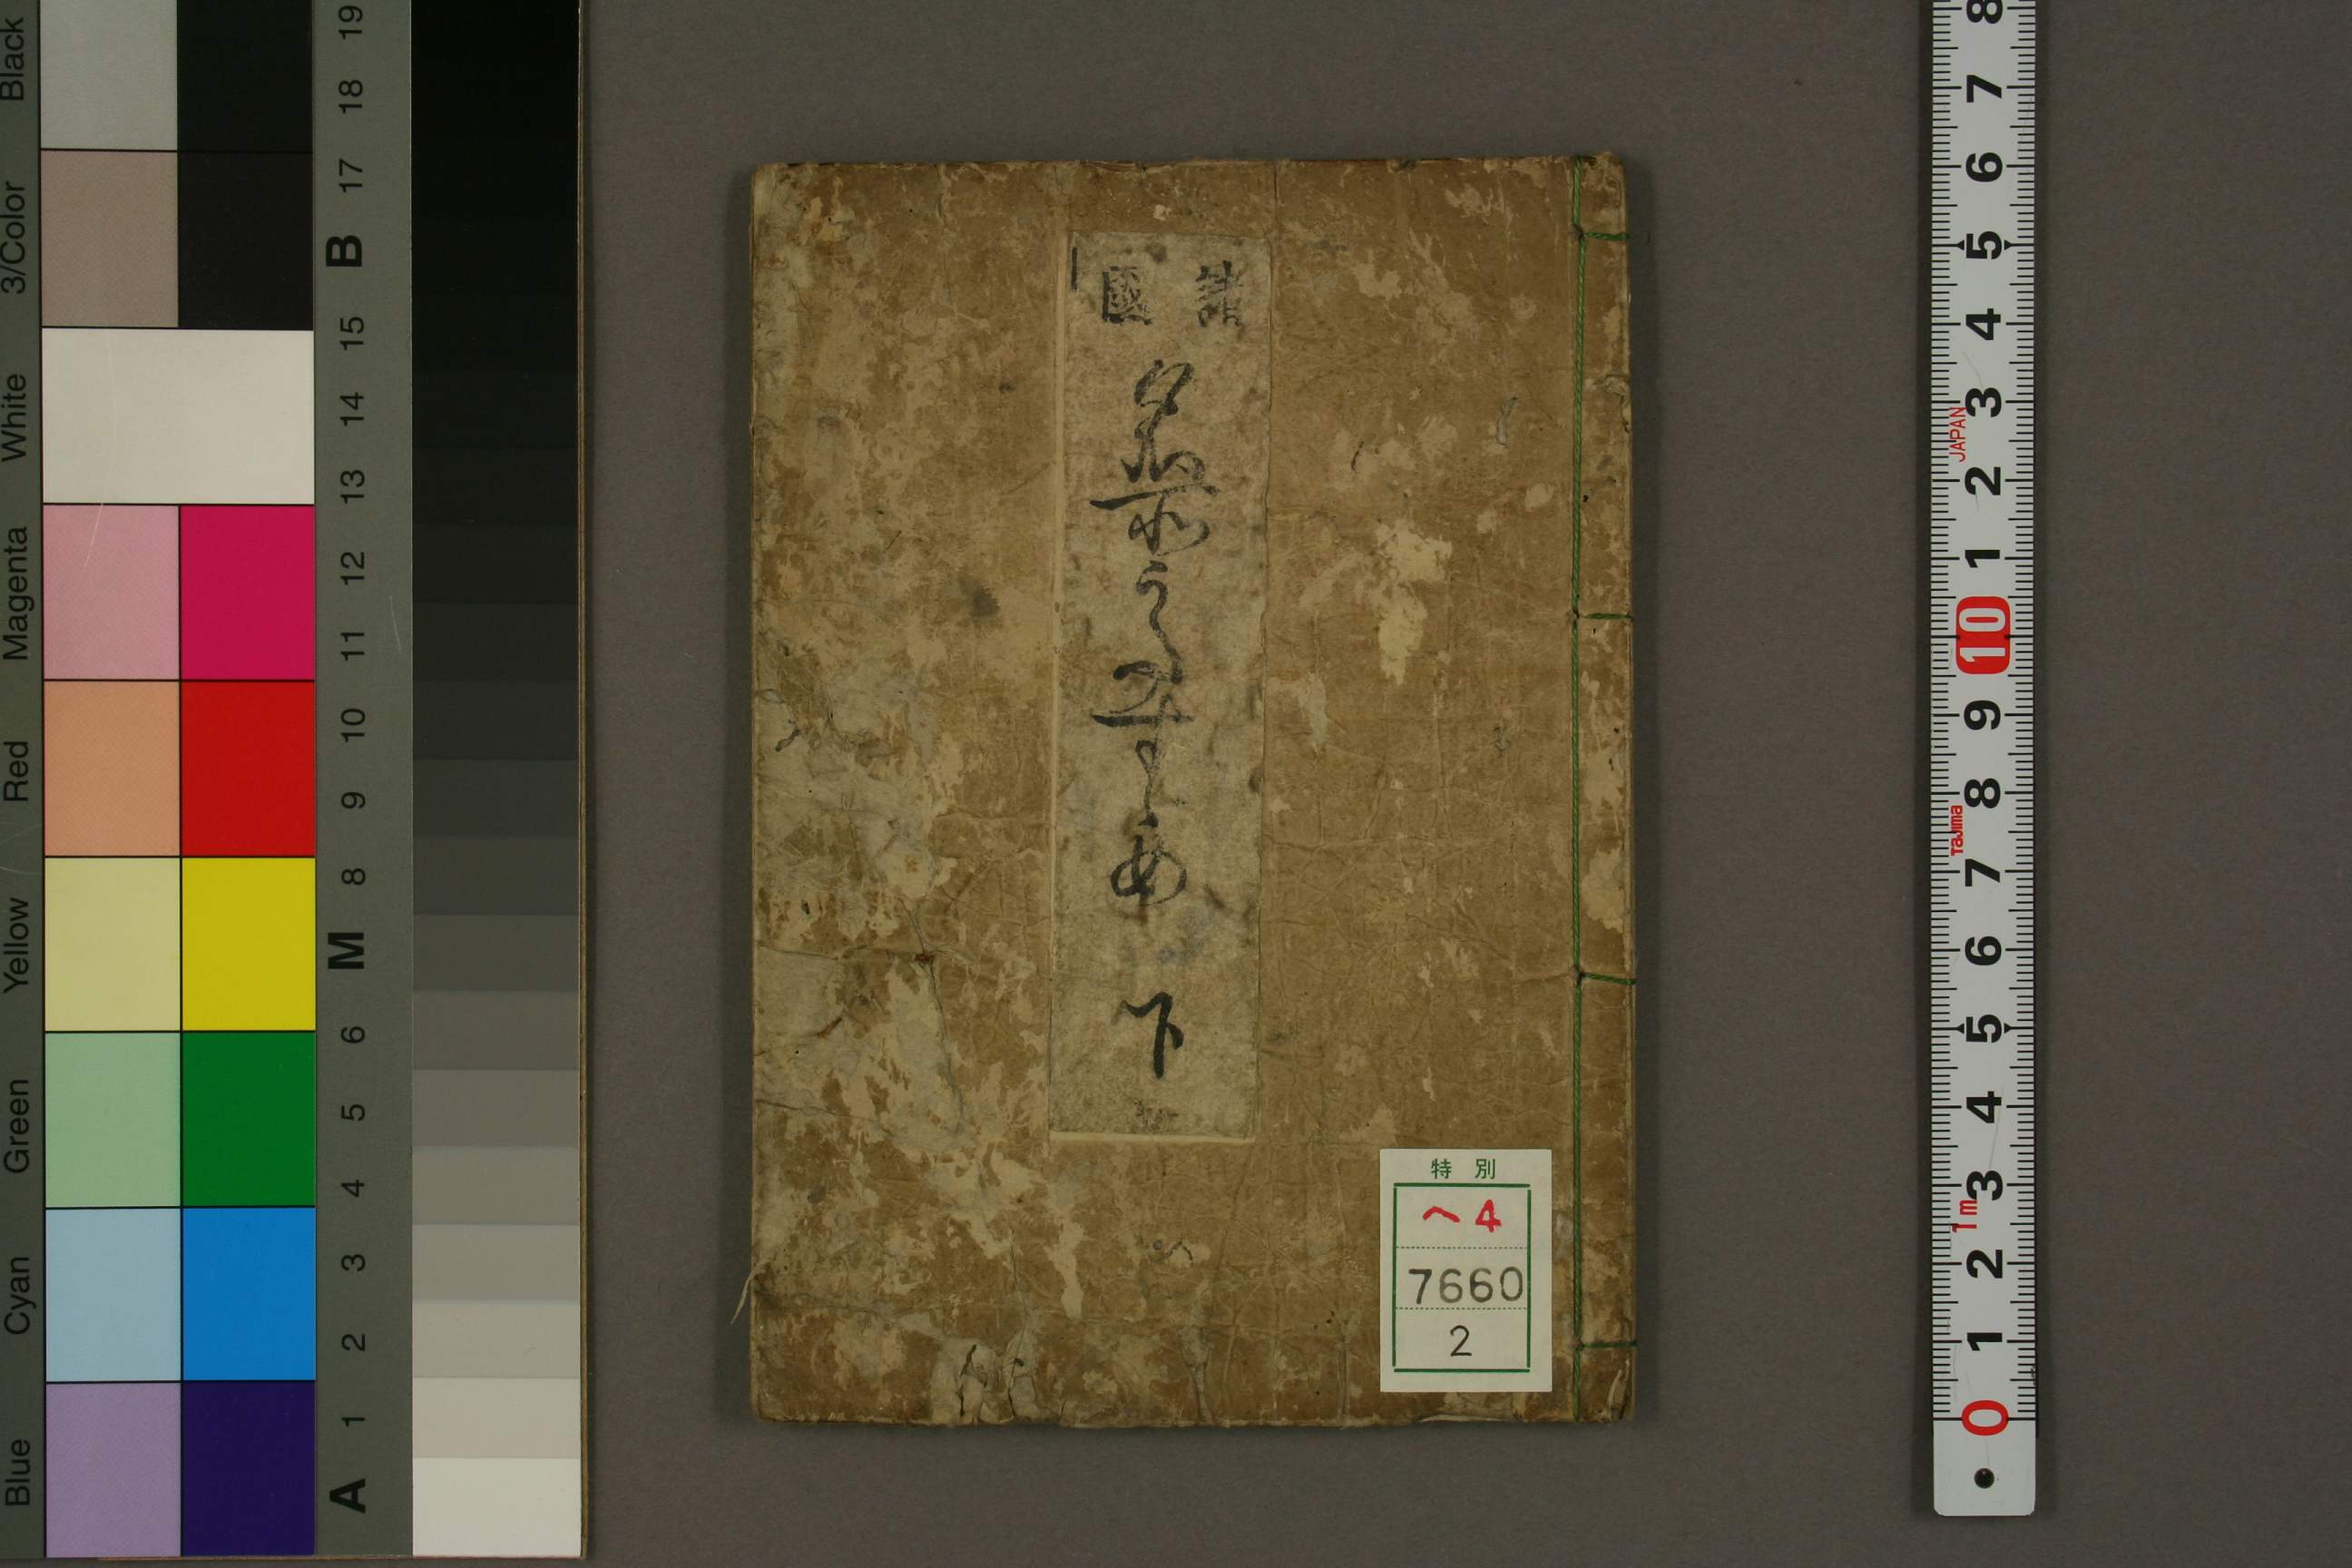 Black
3/Color
White
Magenta
Red
Yellow
Green
Cyan
Blue
19
18
17
B
15
14
13
12
11
10
9
8
M
6
5
4
3
2
1
A
諸國
名所
下
特別
へ4
7660
2
8
7
6
5
4
3
JAPAN
2
1
10
9
8
Tajima
7
6
5
4
3
1m
2
1
0